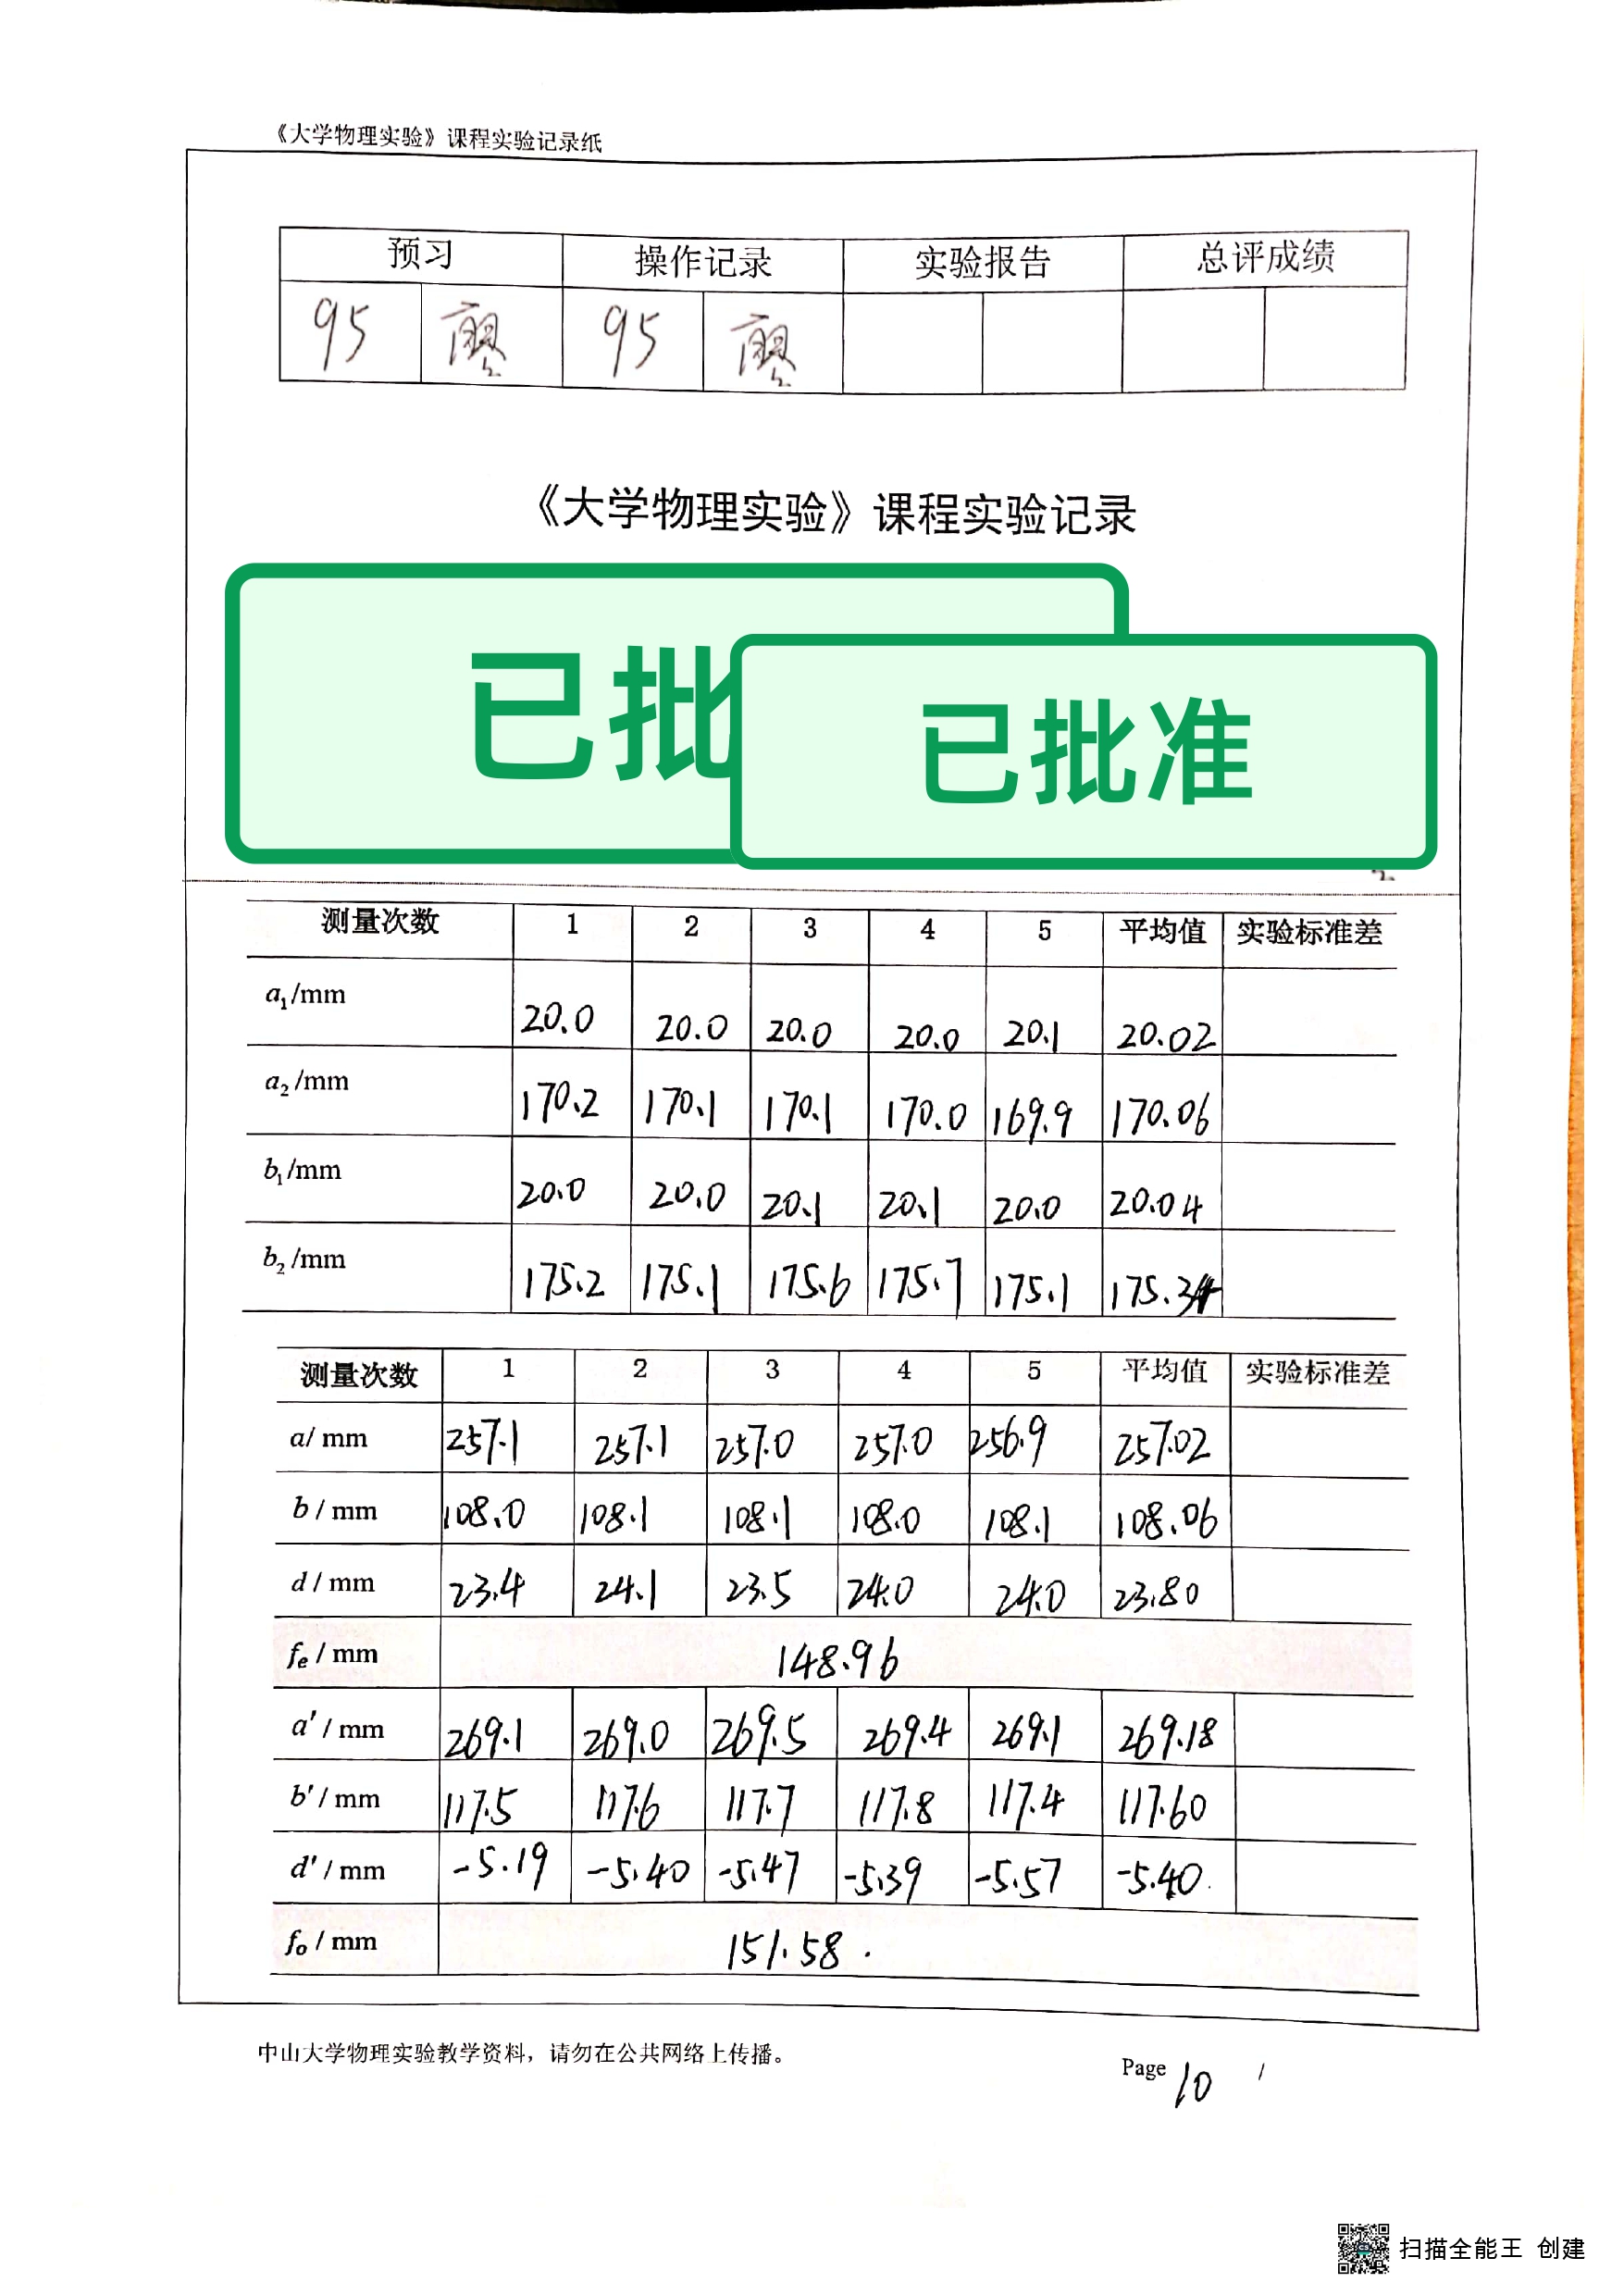 《大学物理实验》课程实验记录纸
预习 操作记录 实验报告 总评成绩
95 廖 95 廖
《大学物理实验》课程实验记录
已批
已批准
测量次数 1 2 3 4 5 平均值 实验标准差
a₁/mm 20.0 20.0 20.0 20.0 20.1 20.02
a₂/mm 170.2 170.1 170.1 170.0 169.9 170.06
b₁/mm 20.0 20.0 20.1 20.1 20.0 20.04
b₂/mm 175.2 175.1 175.6 175.7 175.1 175.34
测量次数 1 2 3 4 5 平均值 实验标准差
a/ mm 257.1 257.1 257.0 257.0 256.9 257.02
b / mm 108.0 108.1 108.1 108.0 108.1 108.06
d / mm 23.4 24.1 23.5 24.0 24.0 23.80
fₑ / mm 148.96
a′ / mm 269.1 269.0 269.5 269.4 269.1 269.18
b′ / mm 117.5 117.6 117.7 117.8 117.4 117.60
d′ / mm -5.19 -5.40 -5.47 -5.39 -5.57 -5.40.
fₒ / mm 151.58.
中山大学物理实验教学资料，请勿在公共网络上传播。
Page 10 /
扫描全能王 创建